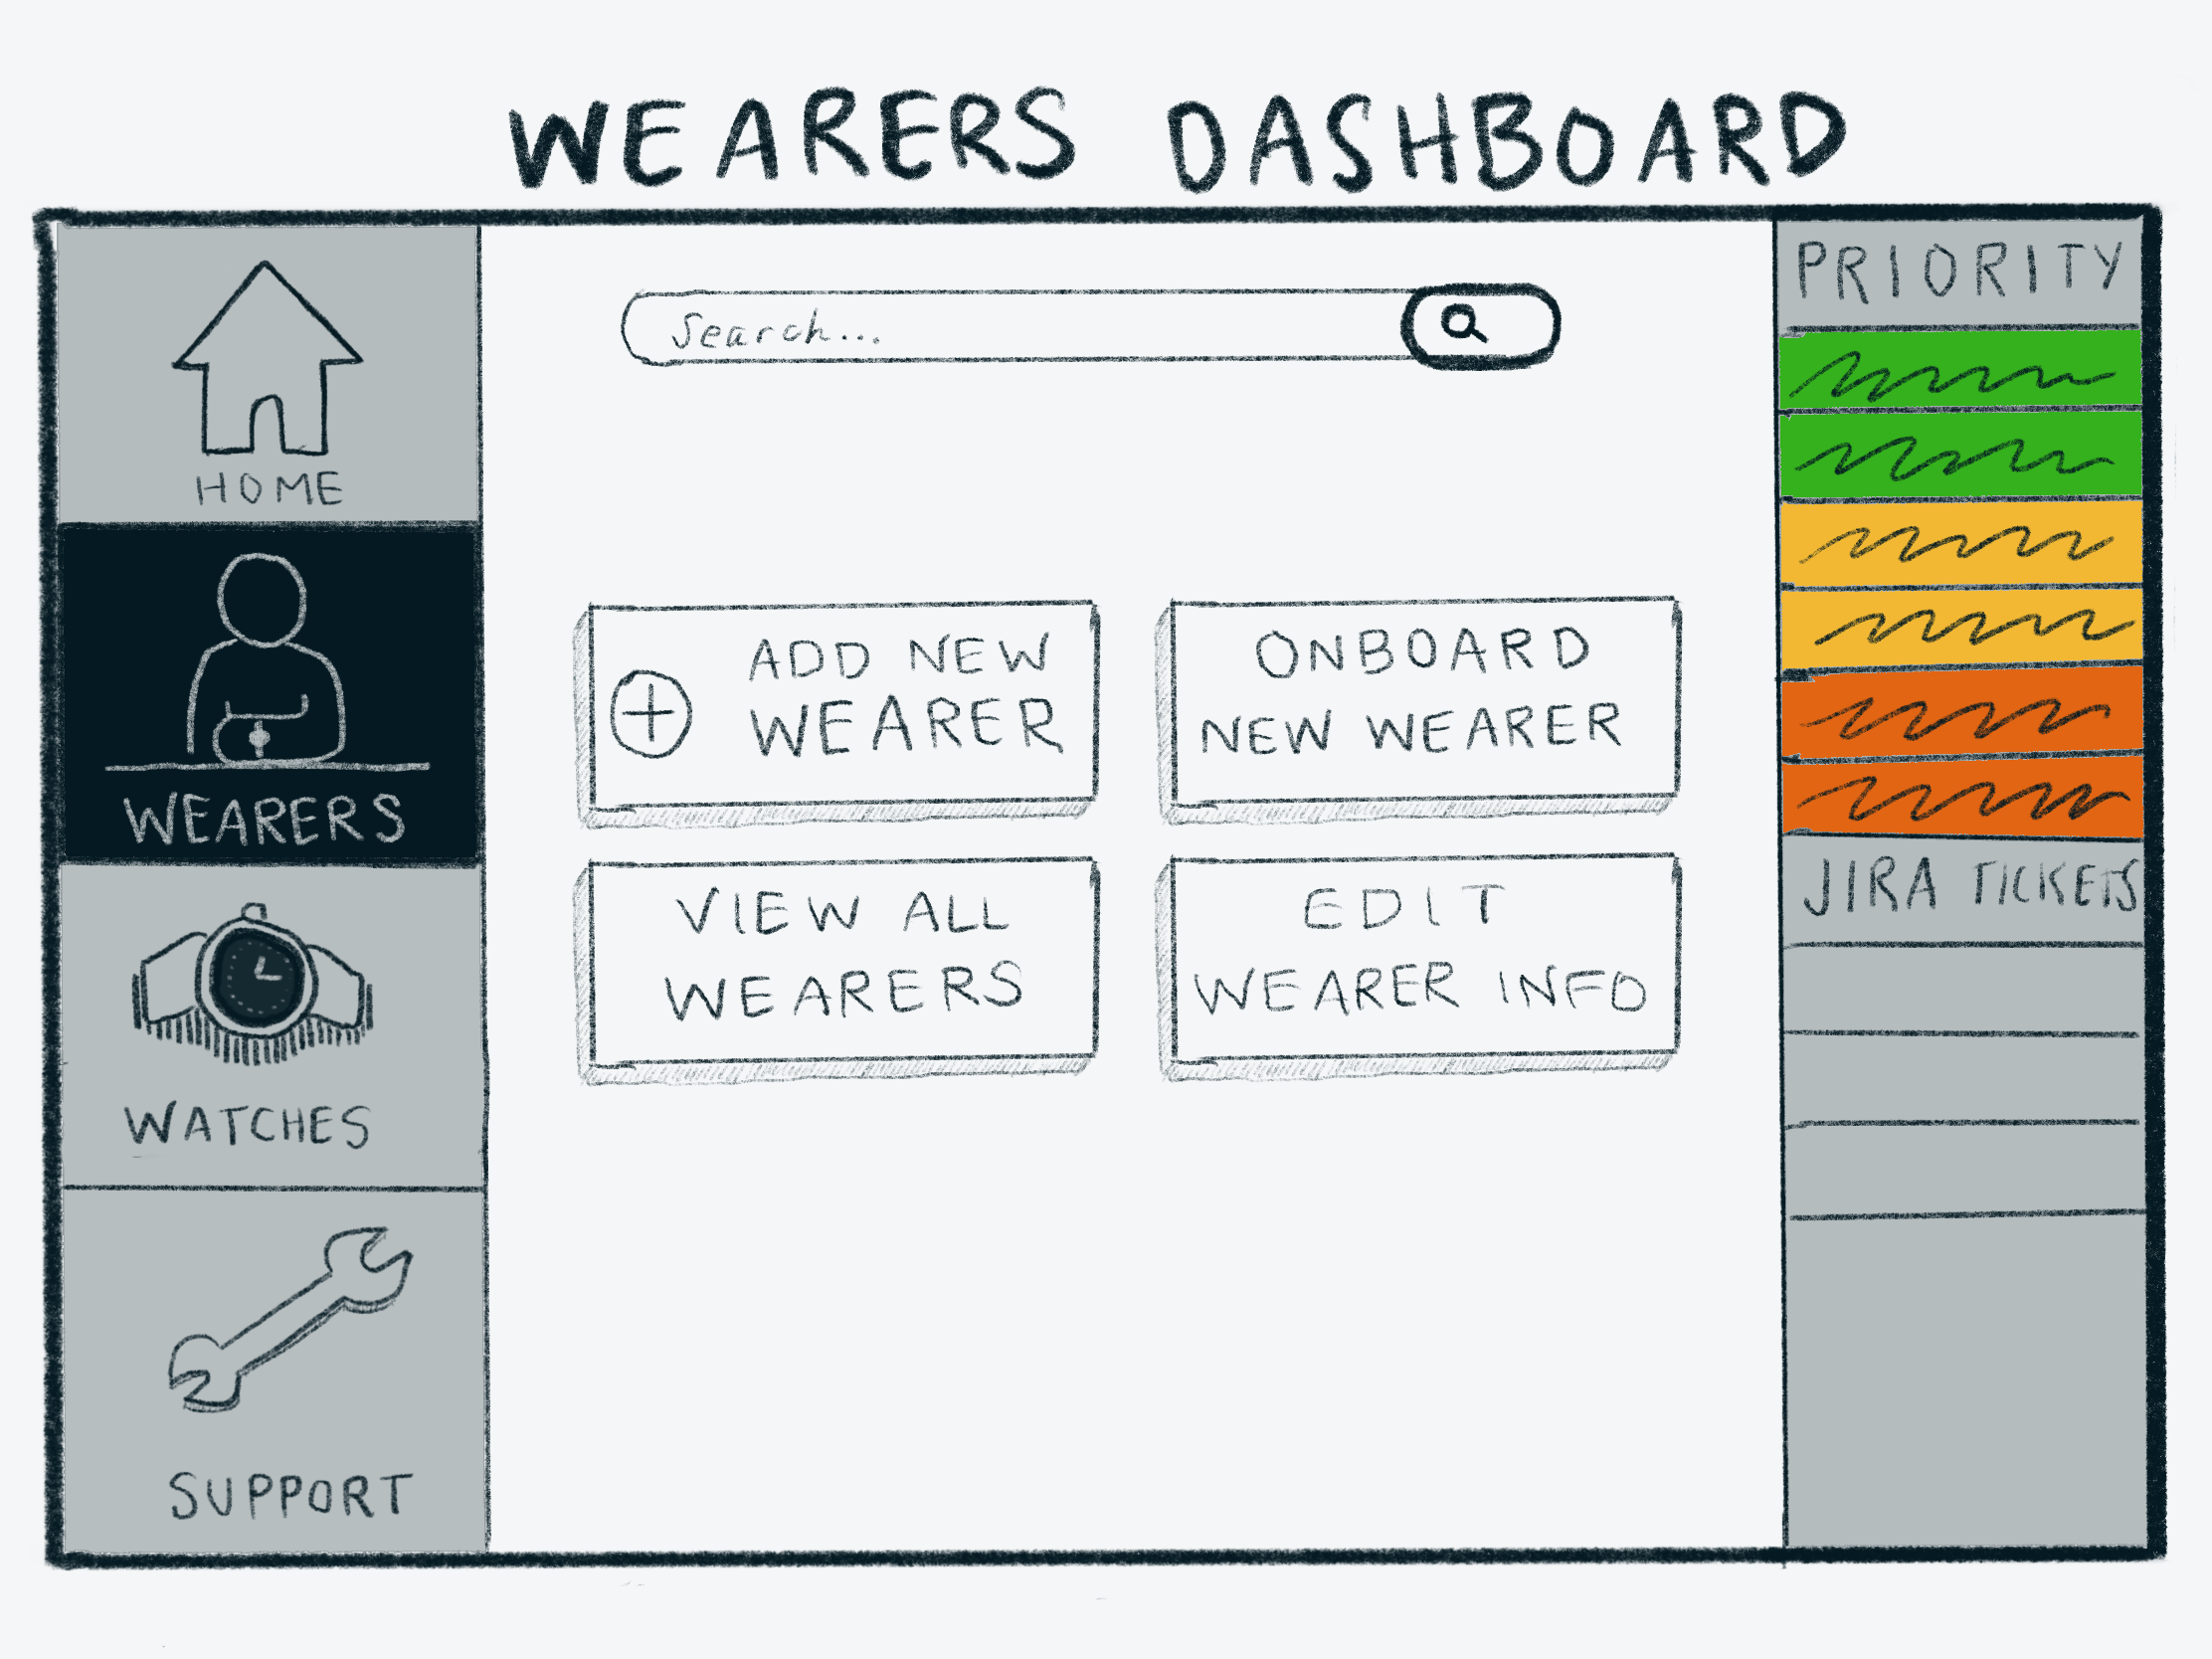 WEARERS DASHBOARD
HOME
WEARERS
WATCHES
SUPPORT
Search...
ADD NEW
WEARER
ONBOARD
NEW WEARER
VIEW ALL
WEARERS
EDIT
WEARER INFO
PRIORITY
JIRA TICKETS